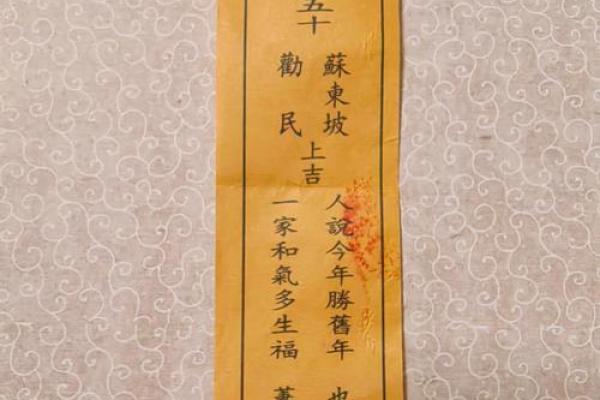 五十
蘇東坡
勸民
上吉
人說今年勝舊年 也
一家和氣多生福